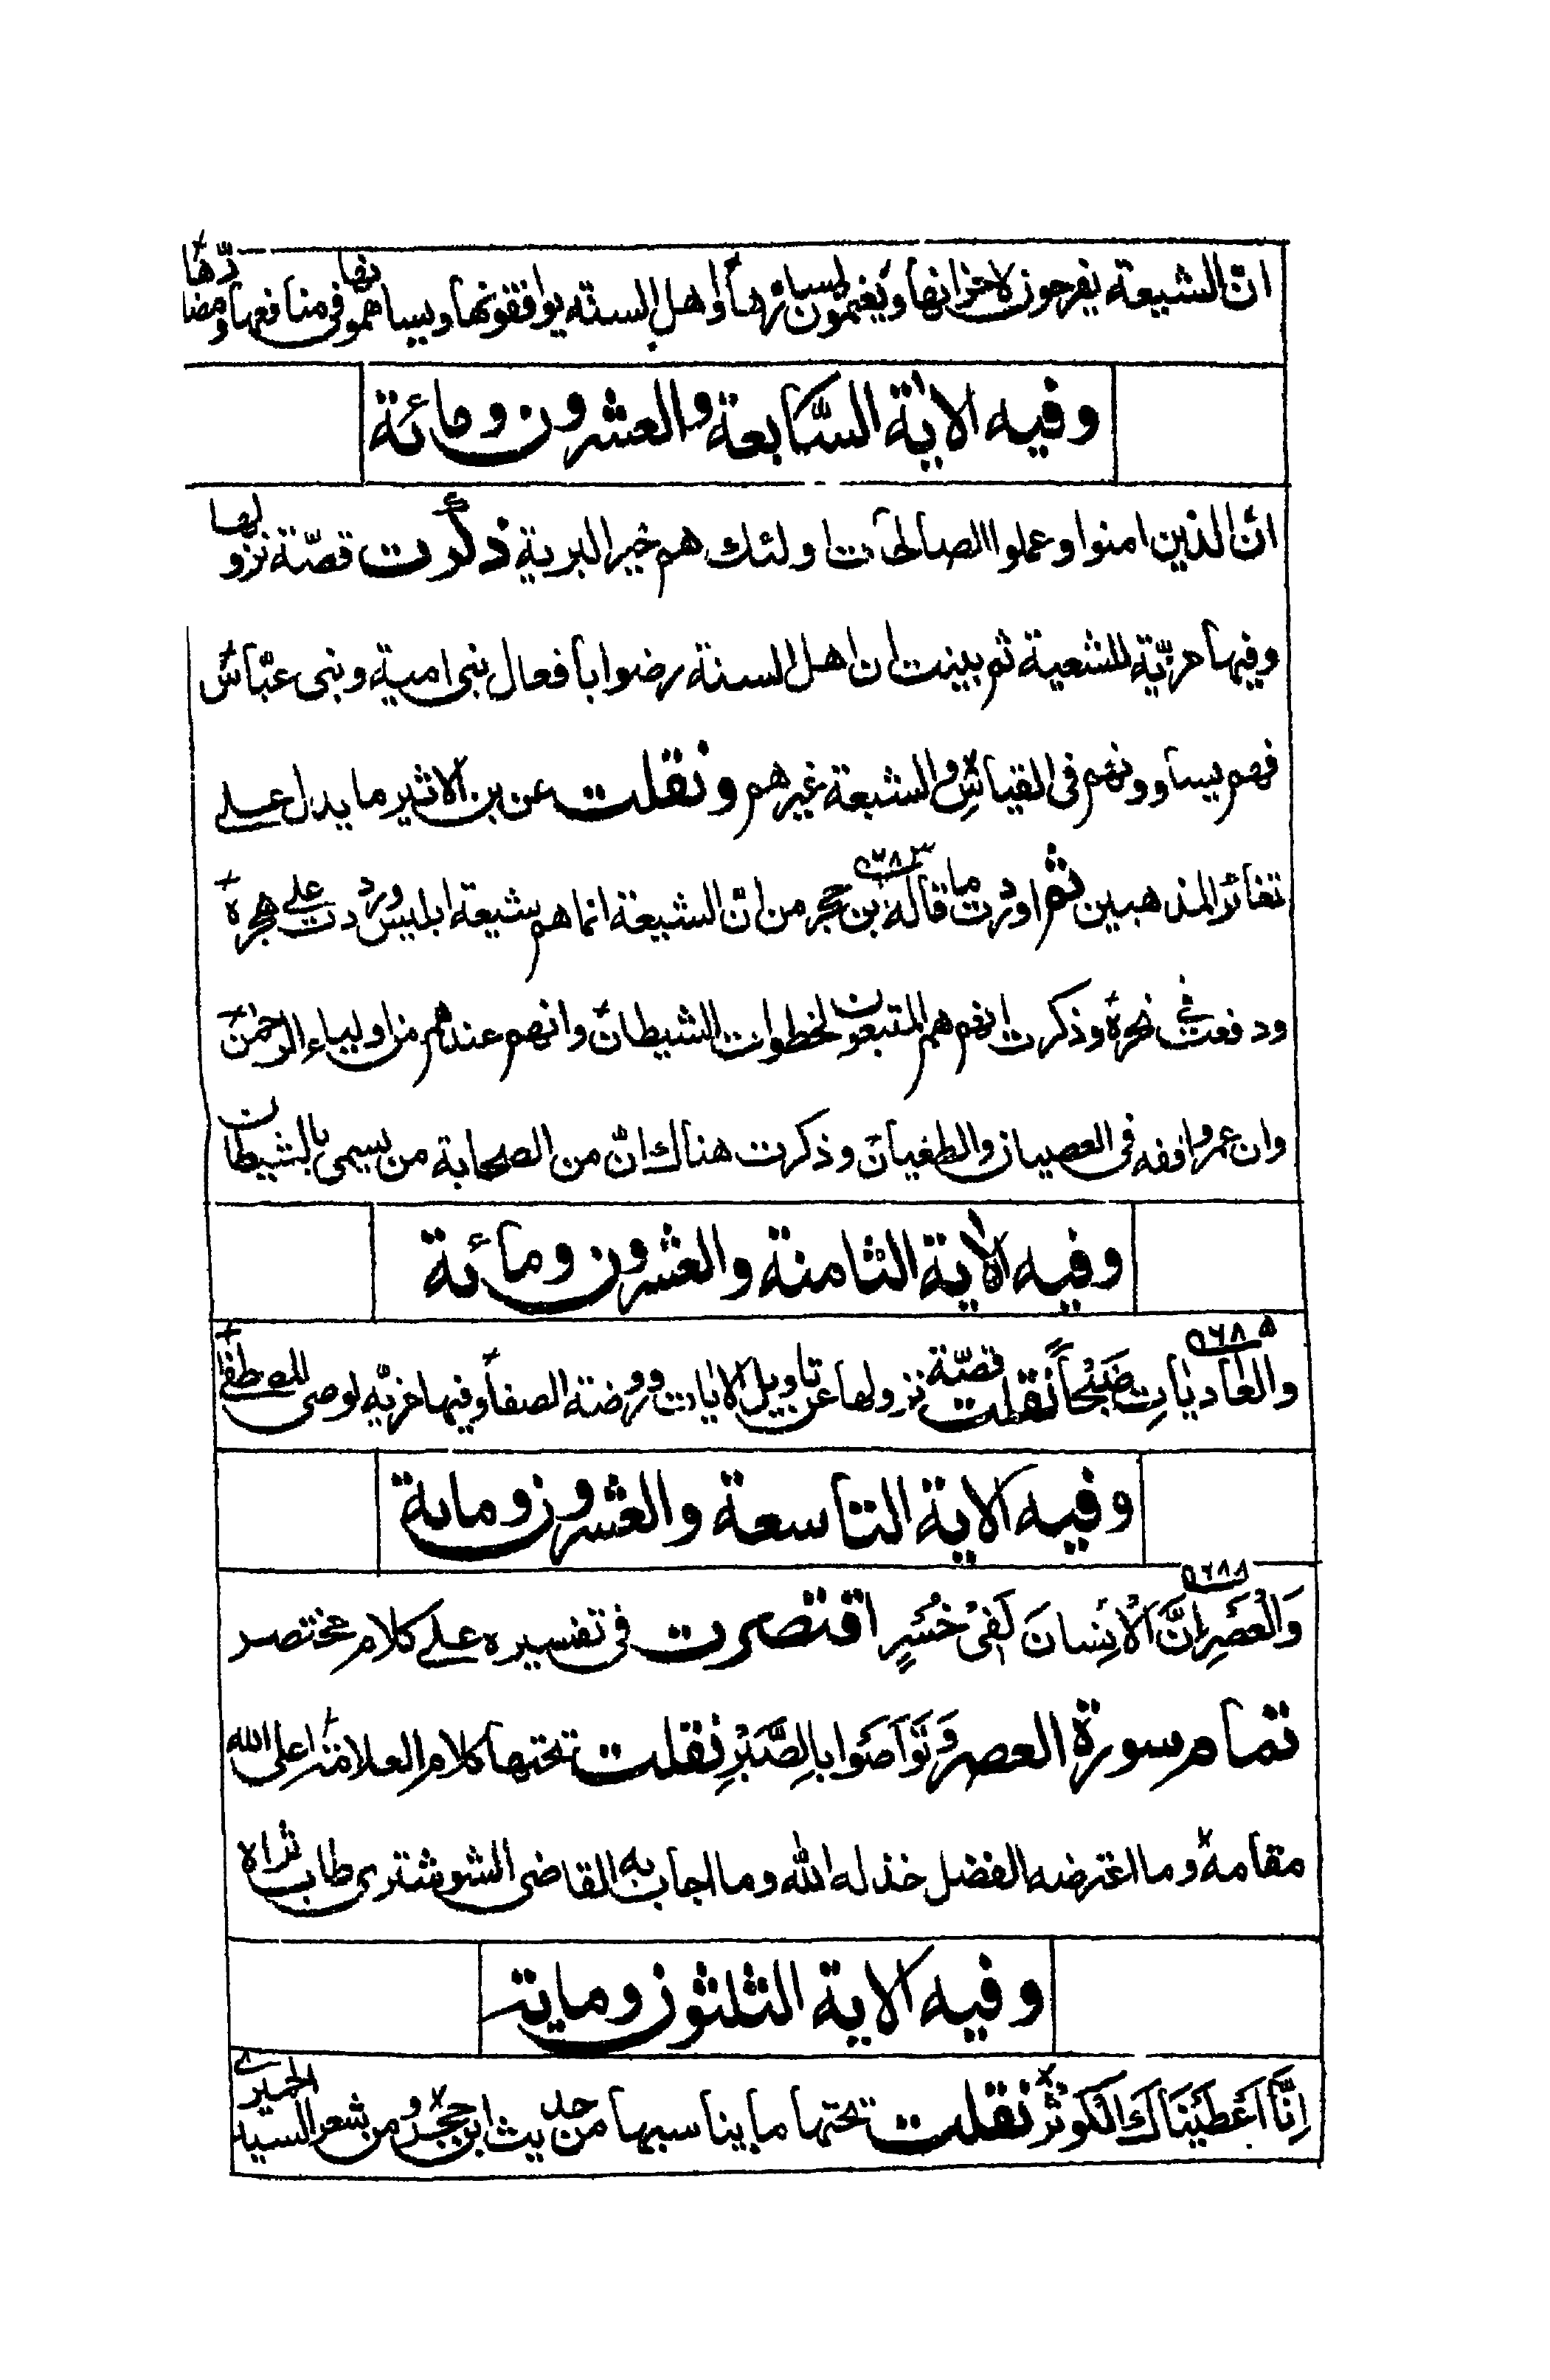 انّ الشيعة يفرحون لاحزانها ويغيمّون لسيائرها واهل السنّة يوافقونها ويساهمونها فى منافعها ومضارّها
وفيه الاية السّابعة والعشرون ومائة
انّ الذين امنوا وعملوا الصالحات اولئك هم خير البرية ذكرت قصّة نزولها
وفيها مزيّة للشعية ثم بينت ان اهل السنة رضوا بافعال بنى امية وبنى عبّاس
فهم يساوونهم فى القياس والشيعة غيرهم ونقلت عن بن الاثير ما يدل على
تغائر المذهبين ثم اوردت ما قاله بن حجر من انّ الشيعة انما هم شيعة ابليس ورددت على هجره
ودفعت فى نحره وذكرت انهم هم المتبعون لخطوات الشيطان وانهم عندهم من اولياء الرحمن
وان عمر وافقه فى العصيان والطغيان وذكرت هناك انّ من الصحابة من يسمى بالشيطان
وفيه الاية الثامنة والعشرون ومائة
والعاديات ضَبْحاً نقلت قصّة نزولها عن تاويل الايات وروضة الصفا وفيها مزيّه لوصى المصطفى
وفيه الاية التاسعة والعشرون وماية
وَالْعَصْرِ اِنَّ الْاِنْسانَ لَفى خُسْرٍ اقتصرت فى تفسيره على كلام مختصر
تمام سورة العصر وَتَوَاصَوا بِالصَّبْرِ نقلت تحتها كلام العلامة اعلى الله
مقامه وما اعترضه الفضل خذله الله وما اجاب به القاضى الشوشترى طاب ثراه
وفيه الاية الثلثون وماية
اِنَّا اَعْطَيْنَاكَ الْكَوْثَرَ نقلت تحتها ما يناسبها من حديث ابن حجر ومن شعر السيد الحميرى